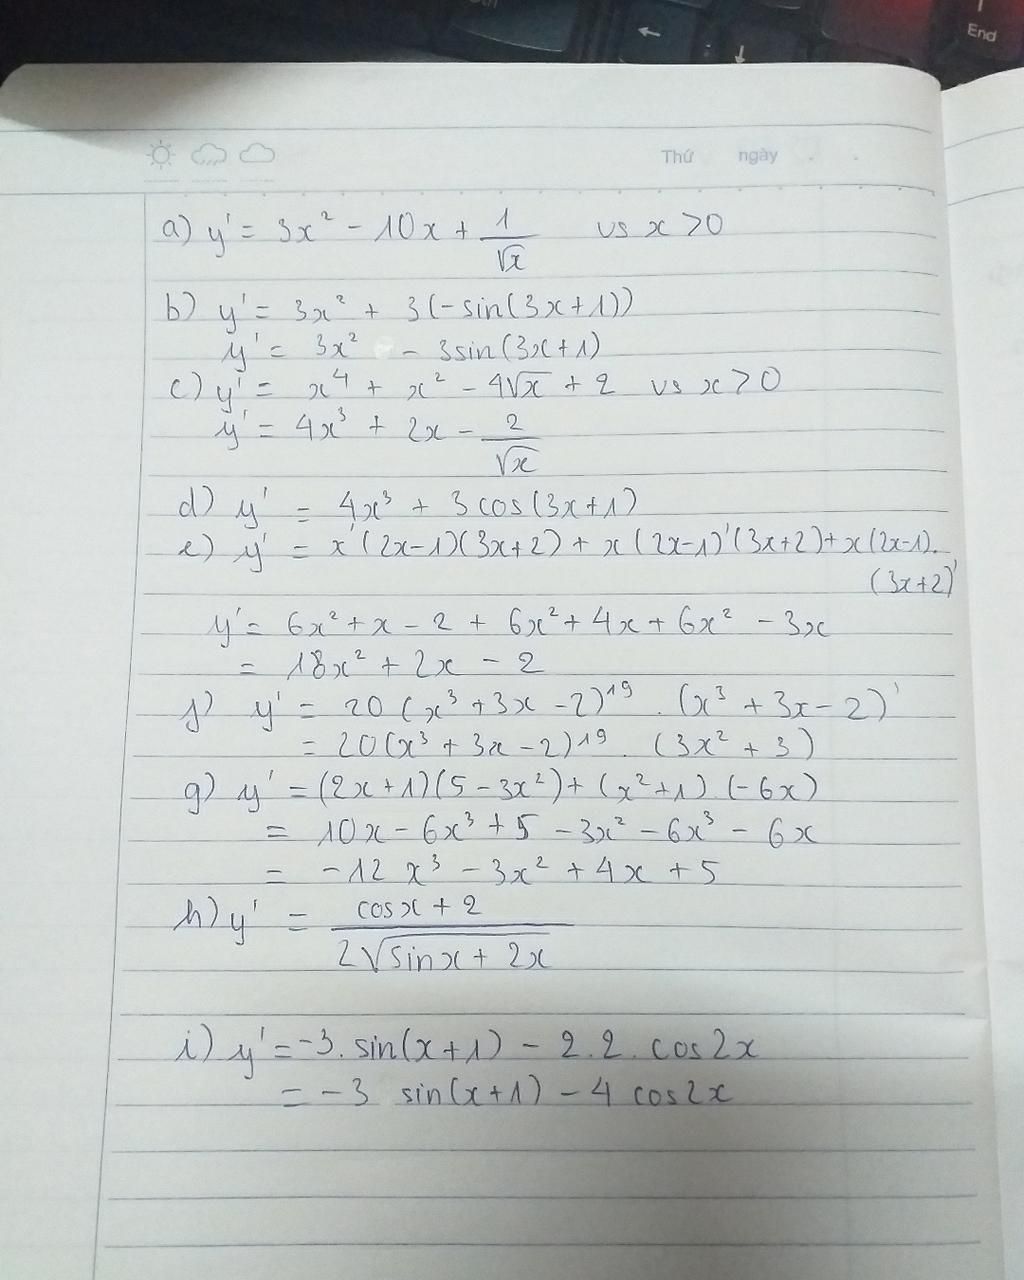 End
Thứ ngày
a) y' = 3x² - 10x + 1/√x vs x > 0
b) y' = 3x² + 3(-sin(3x+1))
y' = 3x² - 3sin(3x+1)
c) y' = x⁴ + x² - 4√x + 2 vs x > 0
y' = 4x³ + 2x - 2/√x
d) y' = 4x³ + 3cos(3x+1)
e) y' = x'(2x-1)(3x+2) + x(2x-1)'(3x+2) + x(2x-1).
(3x+2)'
y' = 6x² + x - 2 + 6x² + 4x + 6x² - 3x
= 18x² + 2x - 2
f) y' = 20(x³ + 3x - 2)¹⁹ . (x³ + 3x - 2)'
= 20(x³ + 3x - 2)¹⁹ . (3x² + 3)
g) y' = (2x+1)(5 - 3x²) + (x²+1).(-6x)
= 10x - 6x³ + 5 - 3x² - 6x³ - 6x
= -12x³ - 3x² + 4x + 5
h) y' = (cosx + 2)/(2√(sinx + 2x))
i) y' = -3.sin(x+1) - 2.2.cos2x
= -3 sin(x+1) - 4 cos2x